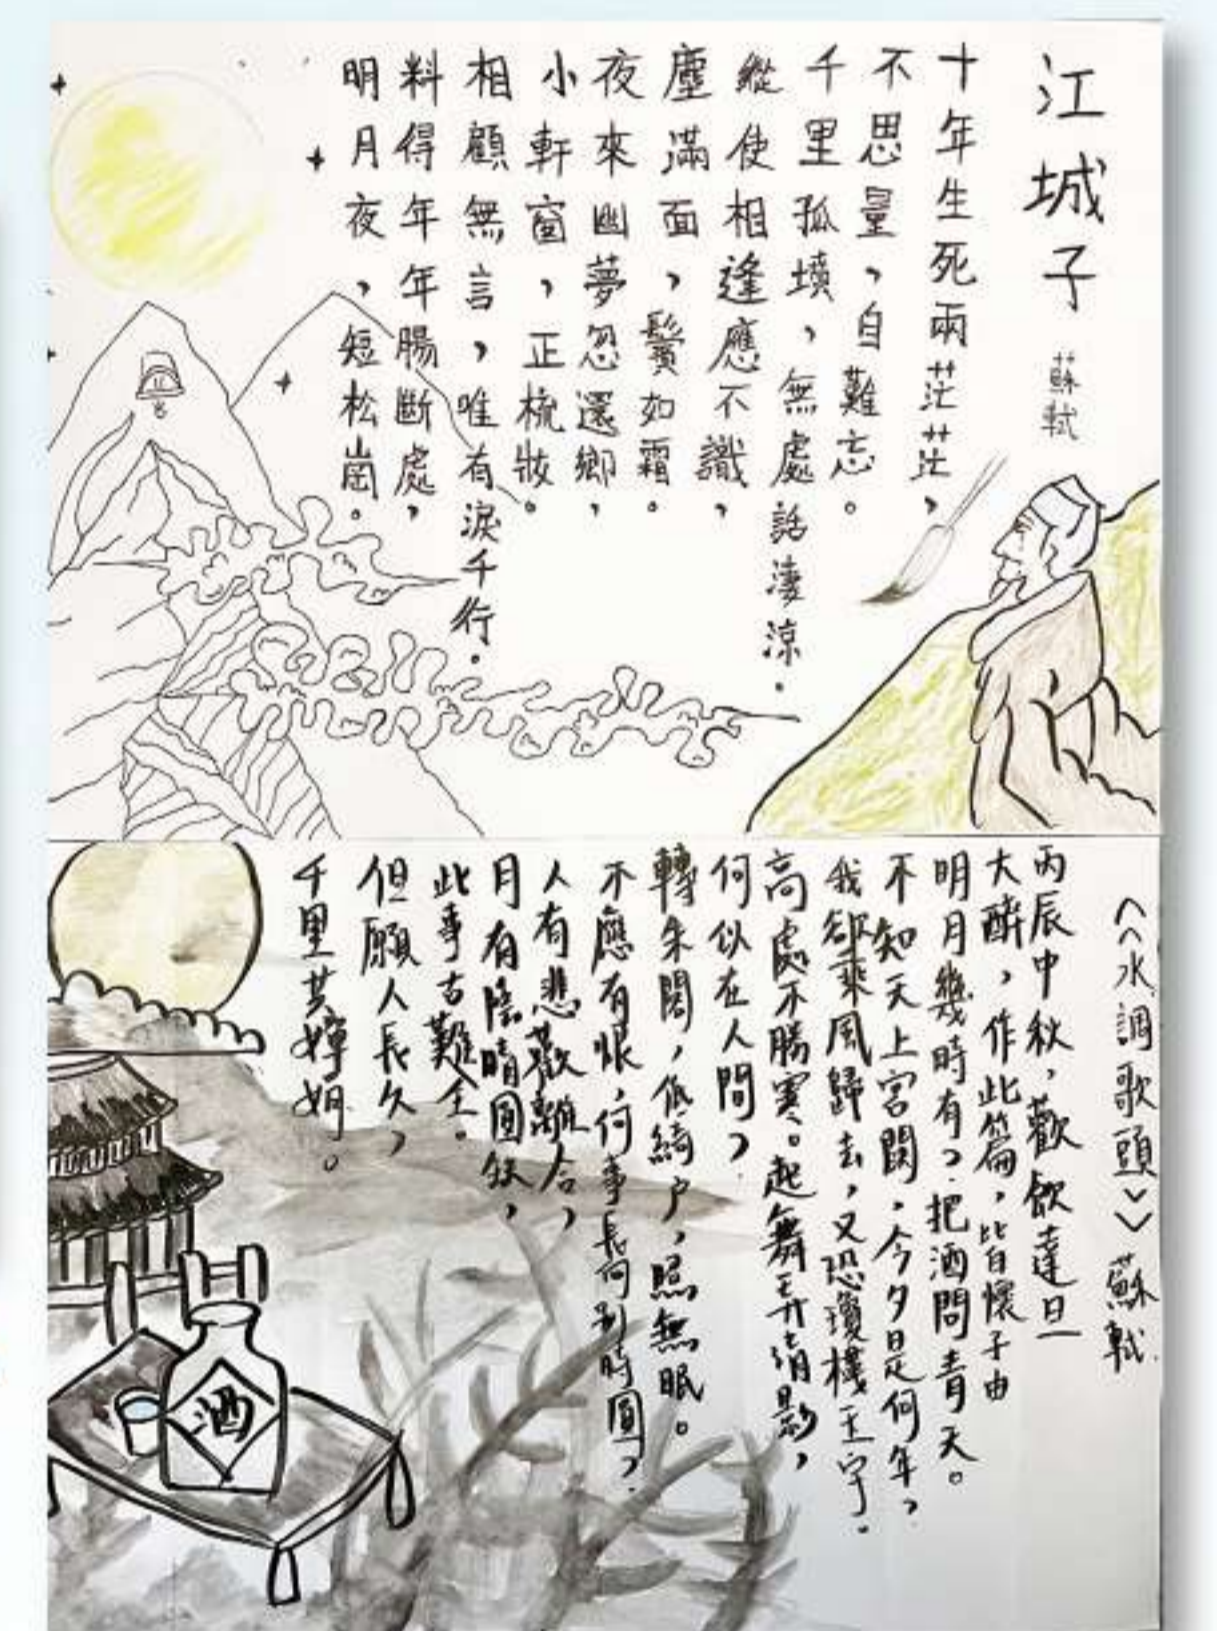 江城子 蘇軾
十年生死兩茫茫，
不思量，自難忘。
千里孤墳，無處話淒涼．
縱使相逢應不識，
塵滿面，鬢如霜。
夜來幽夢忽還鄉，
小軒窗，正梳妝。
相顧無言，唯有淚千行．
料得年年腸斷處，
明月夜，短松崗。
《水調歌頭》蘇軾
丙辰中秋，歡飲達旦
大醉，作此篇，皆自懷子由
明月幾時有？把酒問青天。
不知天上宮闕．今夕是何年，
我欲乘風歸去，又恐瓊樓玉宇．
高處不勝寒。起舞弄清影，
何似在人間？
轉朱閣，低綺戶，照無眠。
不應有恨，何事長向別時圓？
人有悲歡離合，
月有陰晴圓缺，
此事古難全。
但願人長久，
千里共嬋娟。
酒